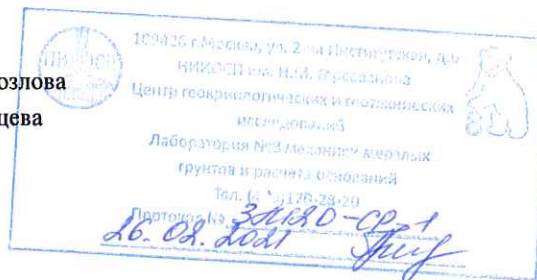 озлова
цева
109428 г.Москва, ул. 2-ая Институтская, д.6
НИИОСП им. Н.М. Герсеванова
Центр геокриологических и геотехнических
исследований
Лаборатория №9 механики мерзлых
грунтов и расчета оснований
Тел.
Протокол №
26.02.2021